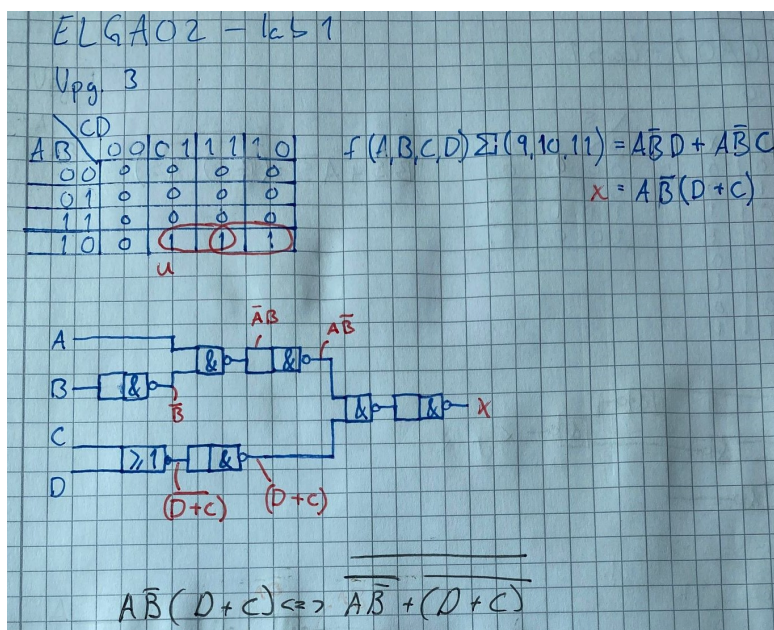 ELGA02 - lab 1
Upg. 3
CD
AB 00 01 11 10
00 0 0 0 0
01 0 0 0 0
11 0 0 0 0
10 0 1 1 1
u
f(A,B,C,D) Σ(9,10,11) = AB̅D + AB̅C
x = AB̅(D+C)
A̅B
AB̅
A
&
&
B
&
B̅
&
&
x
C
≥1
&
D
(D̅+̅C̅)
(D+C)
AB̅(D+C) <=> \overline{\overline{AB̅} + \overline{(D+C)}}